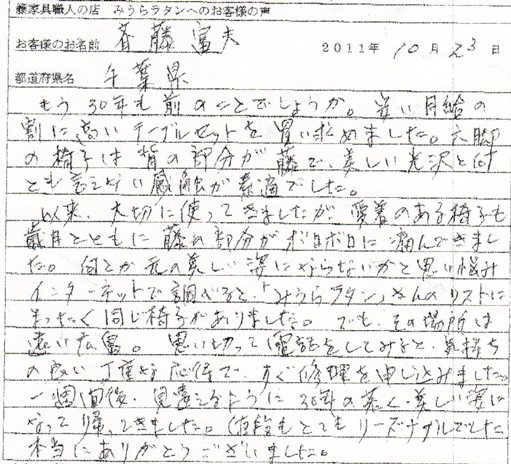 籐家具職人の店 みうらラタンへのお客様の声
お客様のお名前 斉藤富夫 2011年10月23日
都道府県名 千葉県
もう30年も前のことでしょうか。安い月給の
割に高いテーブルセットを買い求めました。六脚
の椅子は背の部分が藤で、美しい光沢と何
とも言えない感触が素適でした。
以来、大切に使ってきましたが、愛着のある椅子も
歳月とともに藤の部分がボロボロに痛んできまし
た。何とか元の美しい姿にならないかと思い悩み
インターネットで調べると、「みうらラタン」さんのリストに
まったく同じ椅子がありました。でも、その場所は
遠い広島。思い切って電話をしてみると、気持ち
の良い丁寧な応体で、すぐ修理を申し込みました。
一週間後、見違えるように30年の若く美しい姿に
なって帰ってきました。価格もとてもリーズナブルでした
本当にありがとうございました。